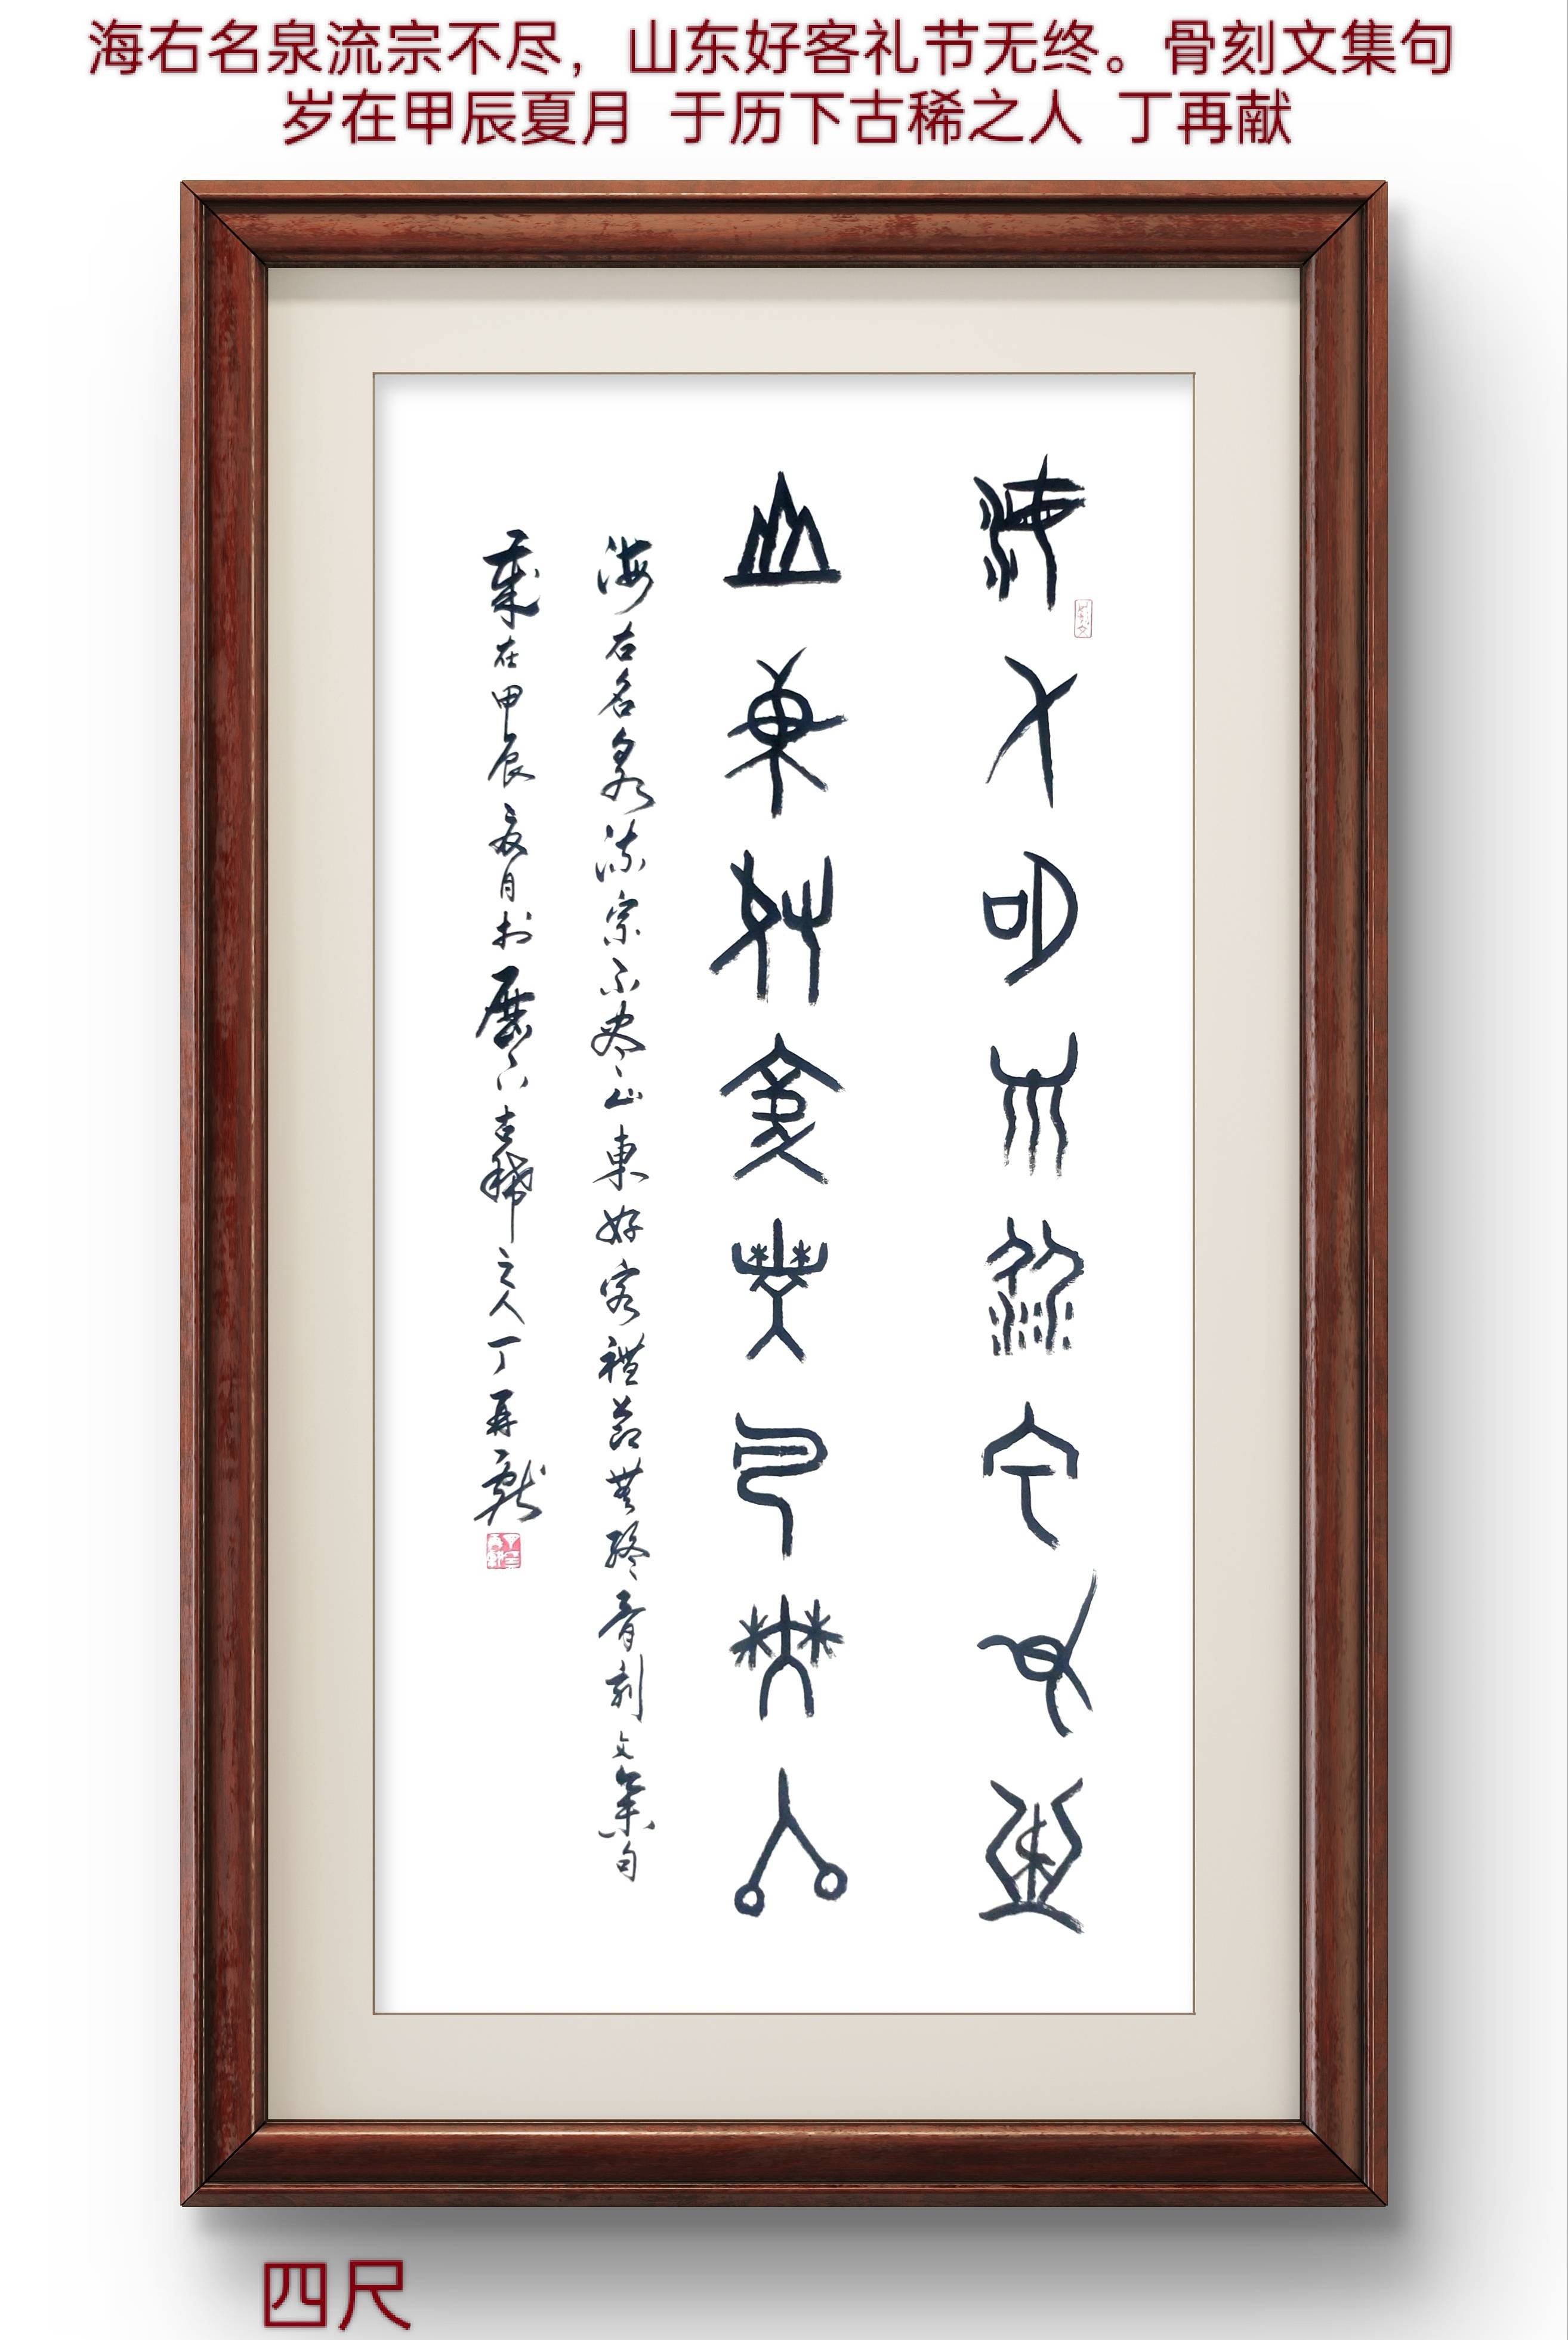 海右名泉流宗不尽，山东好客礼节无终。骨刻文集句
岁在甲辰夏月 于历下古稀之人 丁再献
海右名泉流宗不尽
山東好客禮節無終
海右名泉流宗不尽山東好客禮節無終骨刻文集句
歲在甲辰夏月於歷下古稀之人丁再獻
四尺